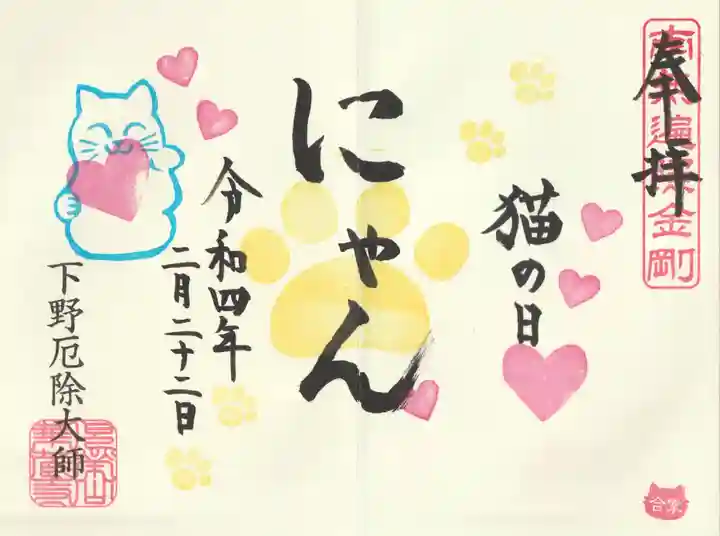 奉拝
南無遍照金剛
猫の日
にゃん
令和四年
二月二十二日
下野厄除大師